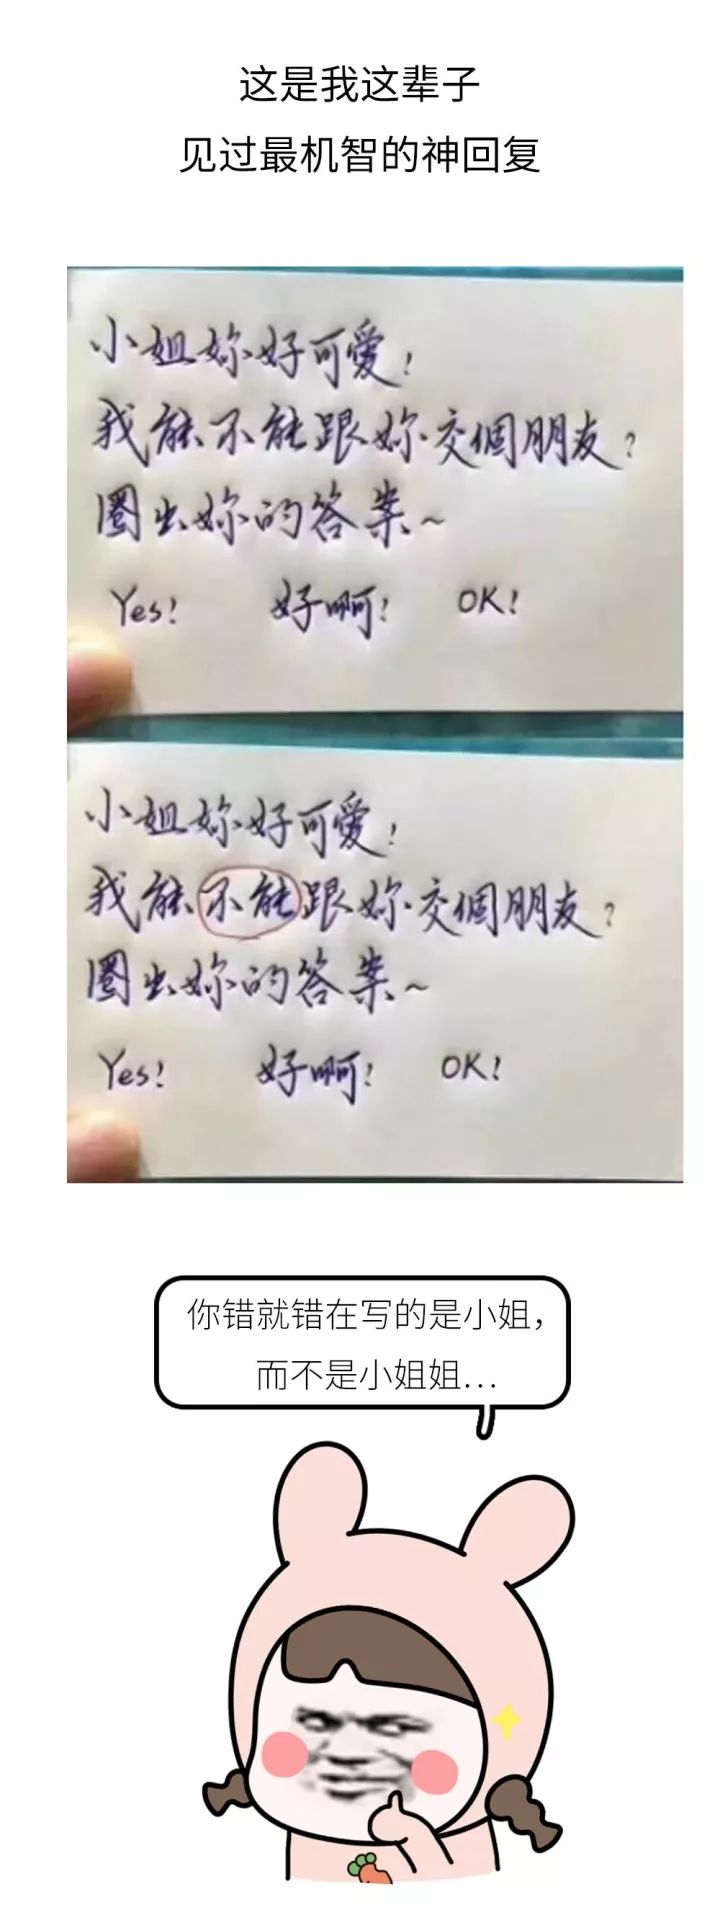 这是我这辈子
见过最机智的神回复
小姐妳好可爱！
我能不能跟妳交個朋友？
圈出妳的答案~
Yes! 好啊! OK!
小姐妳好可爱！
我能不能跟妳交個朋友？
圈出妳的答案~
Yes! 好啊! OK!
你错就错在写的是小姐，
而不是小姐姐...